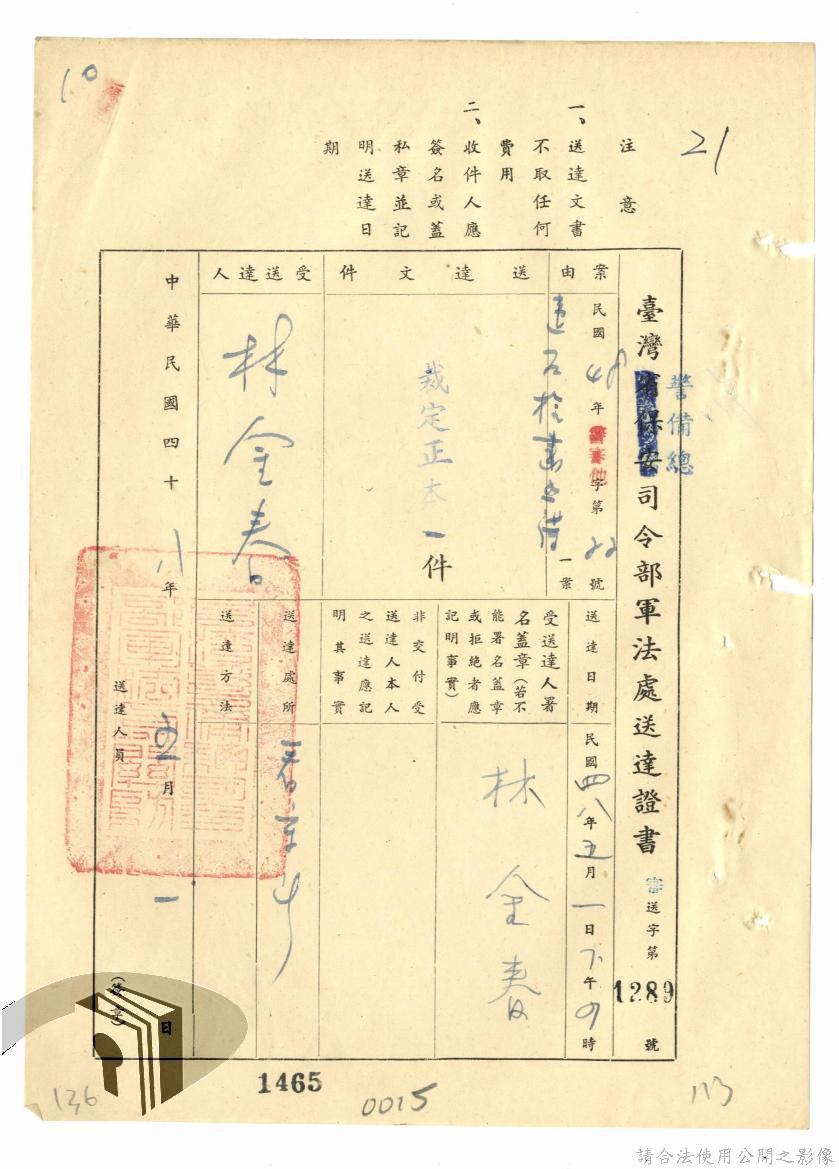 10
21
注意
一、送達文書
不取任何
費用
二、收件人應
簽名或蓋
私章並記
明送達日
期
臺灣省保安司令部軍法處送達證書
警備總
審送字第1289號
案由
民國48年審字第22號
一案
送達文件
裁定正本一件
受送達人
林金春
送達日期
民國四八年五月一日下午の時
受送達人署
名蓋章(若不
能署名蓋章
或拒絶者應
記明事實)
林金春
非交付受
送達人本人
之送達應記
明其事實
送達處所
送達方法
中華民國四十八年五月一日
送達人員
(簽章)
136
1465
0015
113
請合法使用公開之影像